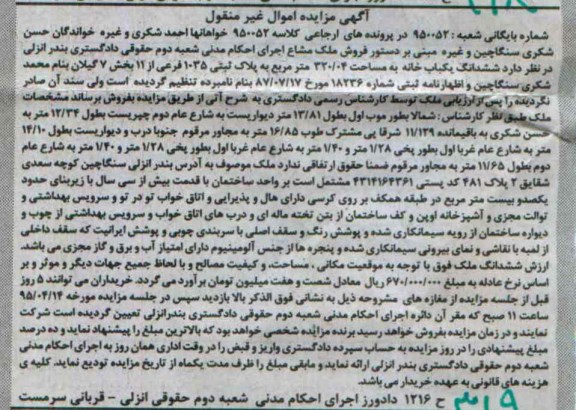 آگهی مزایده اموال غیر منقول
شماره بایگانی شعبه : ۹۵۰۰۵۲ در پرونده های ارجاعی کلاسه ۹۵۰۰۵۲ خواهانها احمد شکری و غیره خواندگان حسن
شکری سنگاچین و غیره مبنی بر دستور فروش ملک مشاع اجرای احکام مدنی شعبه دوم حقوقی دادگستری بندر انزلی
در نظر دارد ششدانگ یکباب خانه به مساحت ۳۳۰/۰۴ متر مربع به پلاک ثبتی ۱۰۳۵ فرعی از ۱۱ بخش ۷ گیلان بنام محمد
شکری سنگاچین و اظهارنامه ثبتی شماره ۱۸۲۳۶ مورخ ۸۷/۰۷/۱۷ بنام نامبرده تنظیم گردیده است ولی سند آن صادر
نگردیده را پس از ارزیابی ملک توسط کارشناس رسمی دادگستری به شرح آتی از طریق مزایده بفروش برساند مشخصات
ملک طبق نظر کارشناس : شمالا بطور موب اول بطول ۱۳/۸۱ متر دیواریست به شارع عام دوم چپریست بطول ۱۲/۳۴ متر به
حسن شکری به باقیمانده ۱۱/۱۲۹ شرقا پی مشترک طوب ۱۶/۸۵ متر به مجاور مرقوم جنوبا درب و دیواریست بطول ۱۴/۱۰
متر به شارع عام غربا اول بطور پخی ۱/۲۸ متر و ۱/۴۰ متر به شارع عام غربا اول بطور پخی ۱/۲۸ متر و ۱/۴۰ متر به شارع عام
دوم بطول ۱۱/۶۵ متر به مجاور مرقوم ضمنا حقوق ارتفاقی ندارد ملک موصوف به آدرس بندر انزلی سنگاچین کوچه سعدی
شقایق ۲ پلاک ۴۸۱ کد پستی ۴۳۱۴۱۶۴۳۶۱ مشتمل است بر واحد ساختمان با قدمت بیش از سی سال با زیربنای حدود
یکصدو بیست متر مربع در طبقه همکف بر روی کرسی دارای هال و پذیرایی و اتاق خواب تو در تو و سرویس بهداشتی و
توالت مجزی و آشپزخانه اوپن و کف ساختمان از بتن تخته ماله ای و درب های اتاق خواب و سرویس بهداشتی از چوب و
دیواره ساختمان از رویه سیمانکاری شده و پوشش رنگ و سقف اصلی با سربندی چوبی و پوشش ایرانیت که سقف داخلی
از لمبه با نقاشی و نمای بیرونی سیمانکاری شده و پنجره ها از جنس آلومینیوم دارای امتیاز آب و برق و گاز مجزی می باشد.
ارزش ششدانگ ملک فوق با توجه به موقعیت مکانی ، مساحت، و کیفیت مصالح و با لحاظ جمیع جهات دیگر و موثر و بر
اساس نرخ عادله به مبلغ ۶۷۰/۰۰۰/۰۰۰ ریال معادل شصت و هفت میلیون تومان برآورد می گردد. خریداران می توانند ۵ روز
قبل از جلسه مزایده از مغازه های مشروحه ذیل به نشانی فوق الذکر بالا بازدید سپس در جلسه مزایده مورخه ۹۵/۰۴/۱۴
ساعت ۱۱ صبح که مقر آن دائره اجرای احکام مدنی شعبه دوم حقوقی دادگستری بندرانزلی تعیین گردیده است شرکت
نمایند و در زمان مزایده بفروش خواهد رسید برنده مزایده شخصی خواهد بود که بالاترین مبلغ را پیشنهاد نماید و ده درصد
مبلغ پیشنهادی را در روز مزایده به حساب سپرده دادگستری واریز و قبض را در وقت اداری همان روز به اجرای احکام مدنی
شعبه دوم حقوقی دادگستری بندر انزلی ارائه نماید و مابقی مبلغ را ظرف مدت یکماه از تاریخ مزایده تودیع نماید. کلیه ی
هزینه های قانونی به عهده خریدار می باشد.
ح ۱۲۱۶ دادورز اجرای احکام مدنی شعبه دوم حقوقی انزلی – قربانی سرمست
۳۱۹